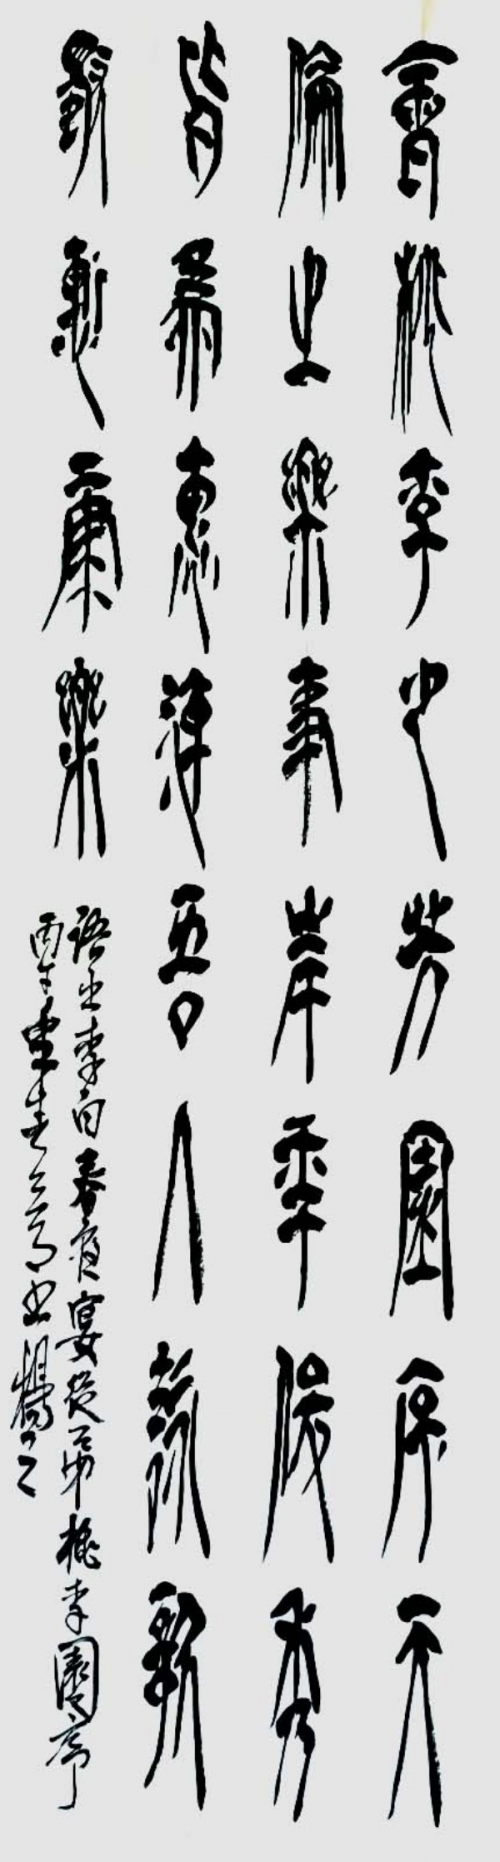 會桃李之芳園序天
倫之樂事羣季俊秀
皆爲惠連吾人詠歌
獨慙康樂
語出李白春夜宴從弟桃李園序
丙午春書